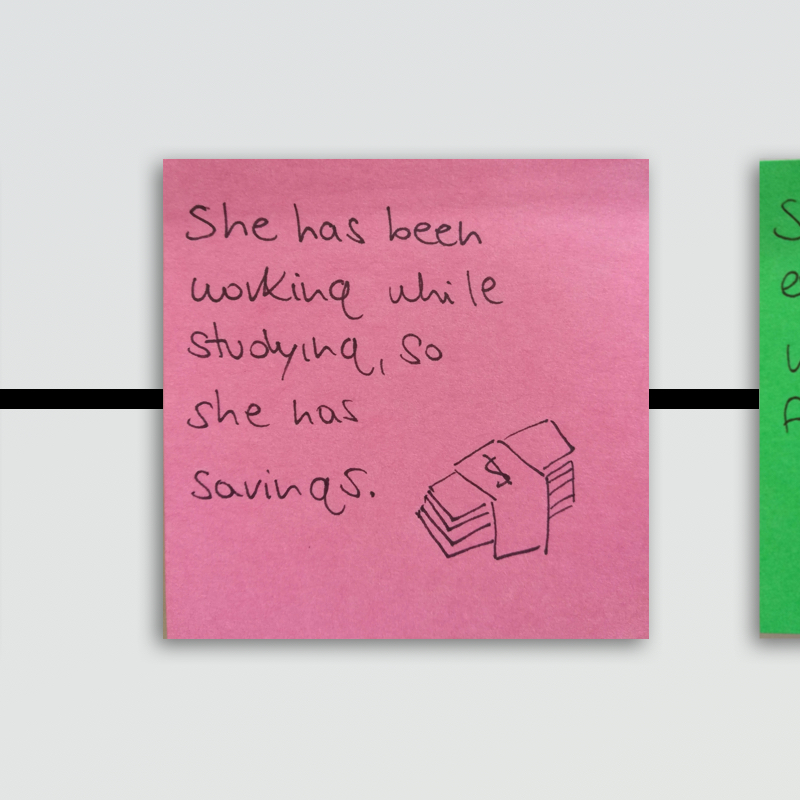 She has been
working while
studying, so
she has
savings.
$